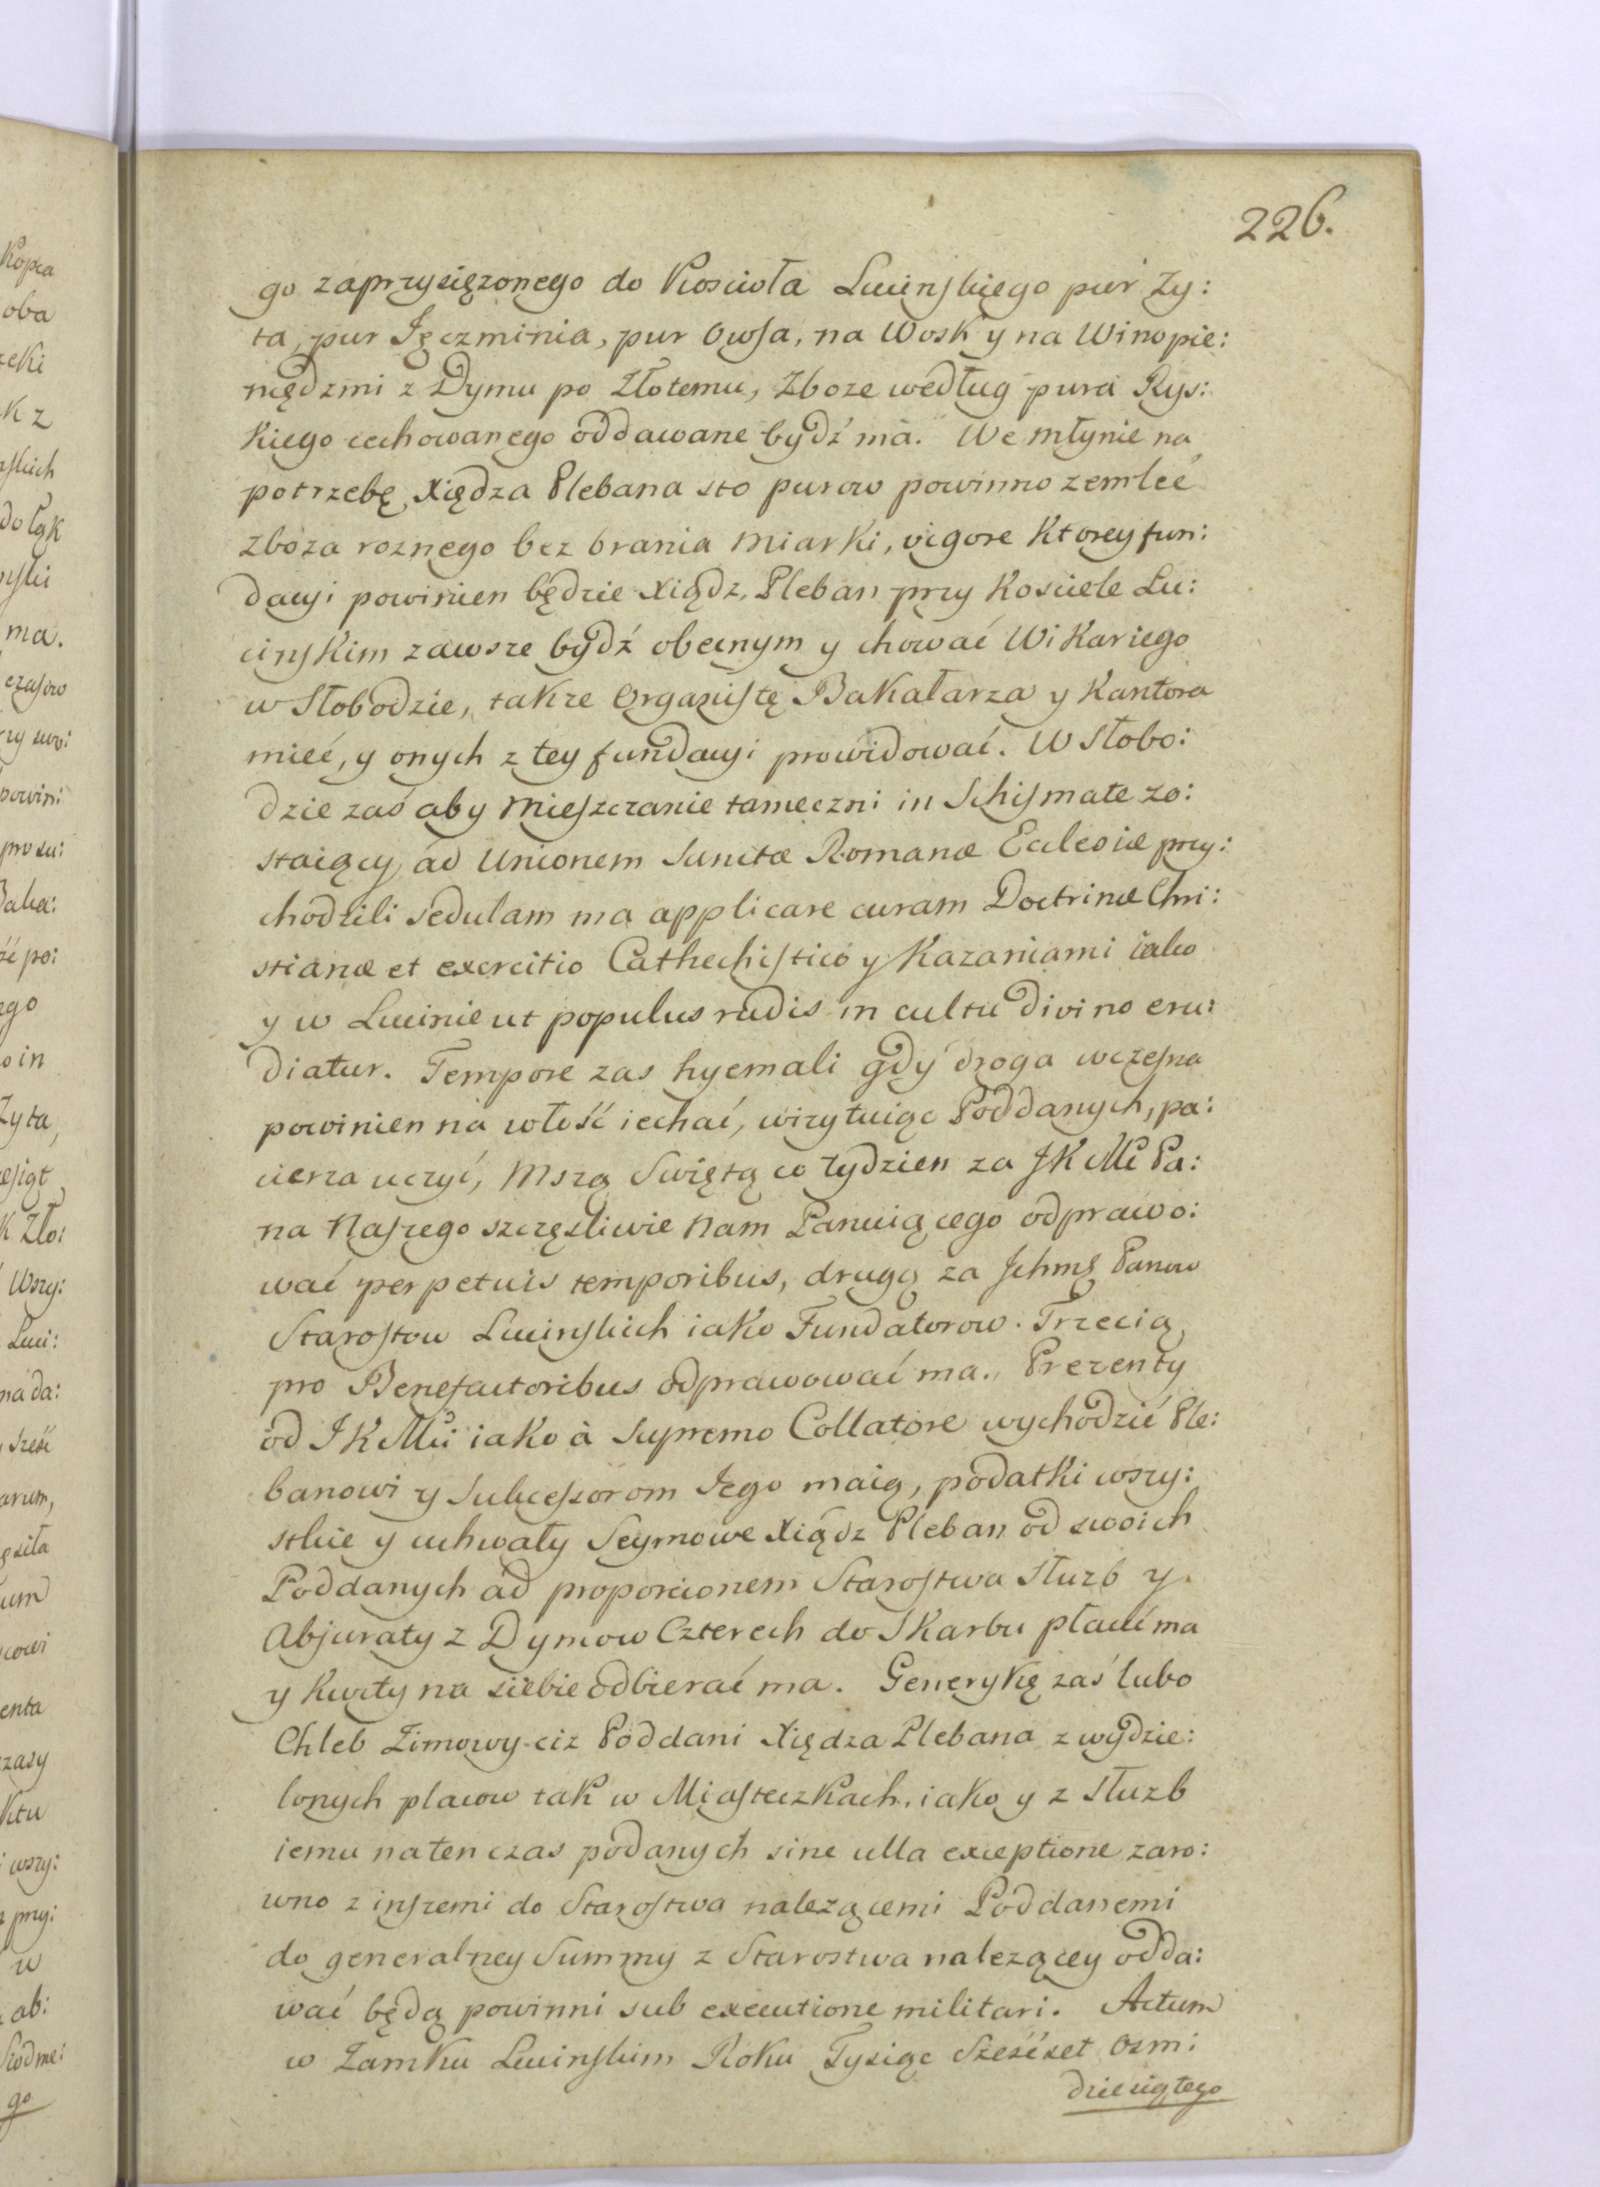 226.
go zaprzysięzonego do Koscioła Lucinskiego pur Zy:
ta, pur Ięczminia, pur Owsa, na Wosk y na Wino pie:
niędzmi z Dymu po Złotemu, Zboze według pura Rys:
kiego cechowanego oddawane bydź ma. We młynie na
potrzebę Xiędza Plebana sto purow powinno zemleć
zboza roznego bez brania miarki, vigore ktorey fun:
dacyi powinien będzie Xiądz Pleban przy Kosciele Lu:
cinskim zawsze bydź obecnym y chować Wikariego
w Słobodzie, takze Organistę Bakałarza y Kantora
mieć, y onych z tey fundacyi prowidować. W Słobo:
dzie zaś aby Mieszczanie tameczni in Schismate zo:
staiący ad Unionem Sanctæ Romanæ Ecclesiæ przy:
chodzili sedulam ma applicare curam Doctrinæ Chri:
stianæ et exercitio Cathechistico y Kazaniami iako
y w Lucinie ut populus rudis in cultu divino eru:
diatur. Tempore zas hyemali gdy droga wczesna
powinien na włość iechać, wizytuiąc Poddanych, pa:
cierza uczyć, Mszą Swiętą co tydzien za JKMć Pa:
na Naszego szczęsliwie nam Panuiącego odprawo:
wać perpetuis temporibus, drugą za Jchmę Panow
Starostow Lucinskich iako Fundatorow. Trzecią
pro Benefactoribus odprawować ma. Prezenty
od JKMci iako à Supremo Collatore wychodzić Ple:
banowi y Sukcessorom Iego maią, podatki wszy:
stkie y uchwały Seymowe Xiądz Pleban od swoich
Poddanych ad proporcionem Starostwa Służb y
Abjuraty z Dymow Czterech do Skarbu płacić ma
y kwity na siebie odbierać ma. Generykę zaś lubo
Chleb Zimowy ciz Poddani Xiędza Plebana z wydzie:
lonych placow tak w Miasteczkach, iako y z Służb
iemu na ten czas podanych sine ulla exceptione zaro:
wno z inszemi do Starostwa nalezącemi Poddanemi
do generalney Summy z Starostwa nalezącey odda:
wać będą powinni sub executione militari. Actum
w Zamku Lucinskim Roku Tysiąc Sześćset Osm:
dziesiątego